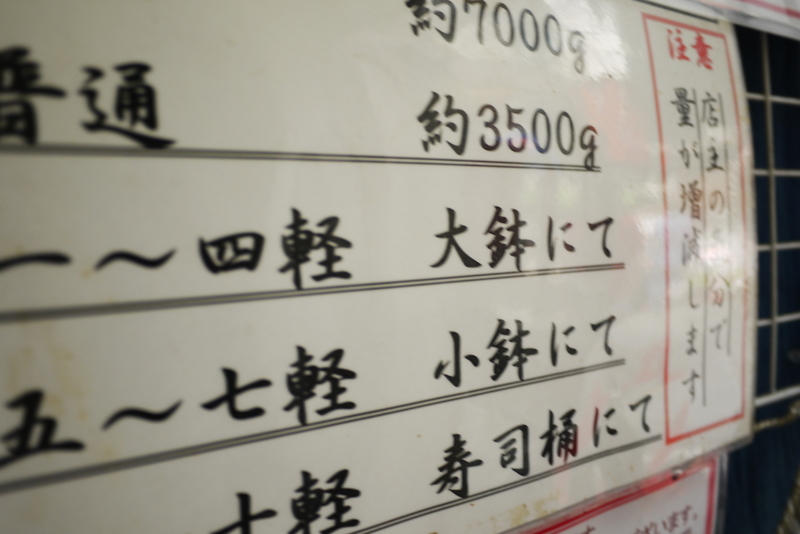 約7000g
普通 約3500g
一〜四軽 大鉢にて
五〜七軽 小鉢にて
十軽 寿司桶にて
注意
店主の気分で
量が増減します
います。